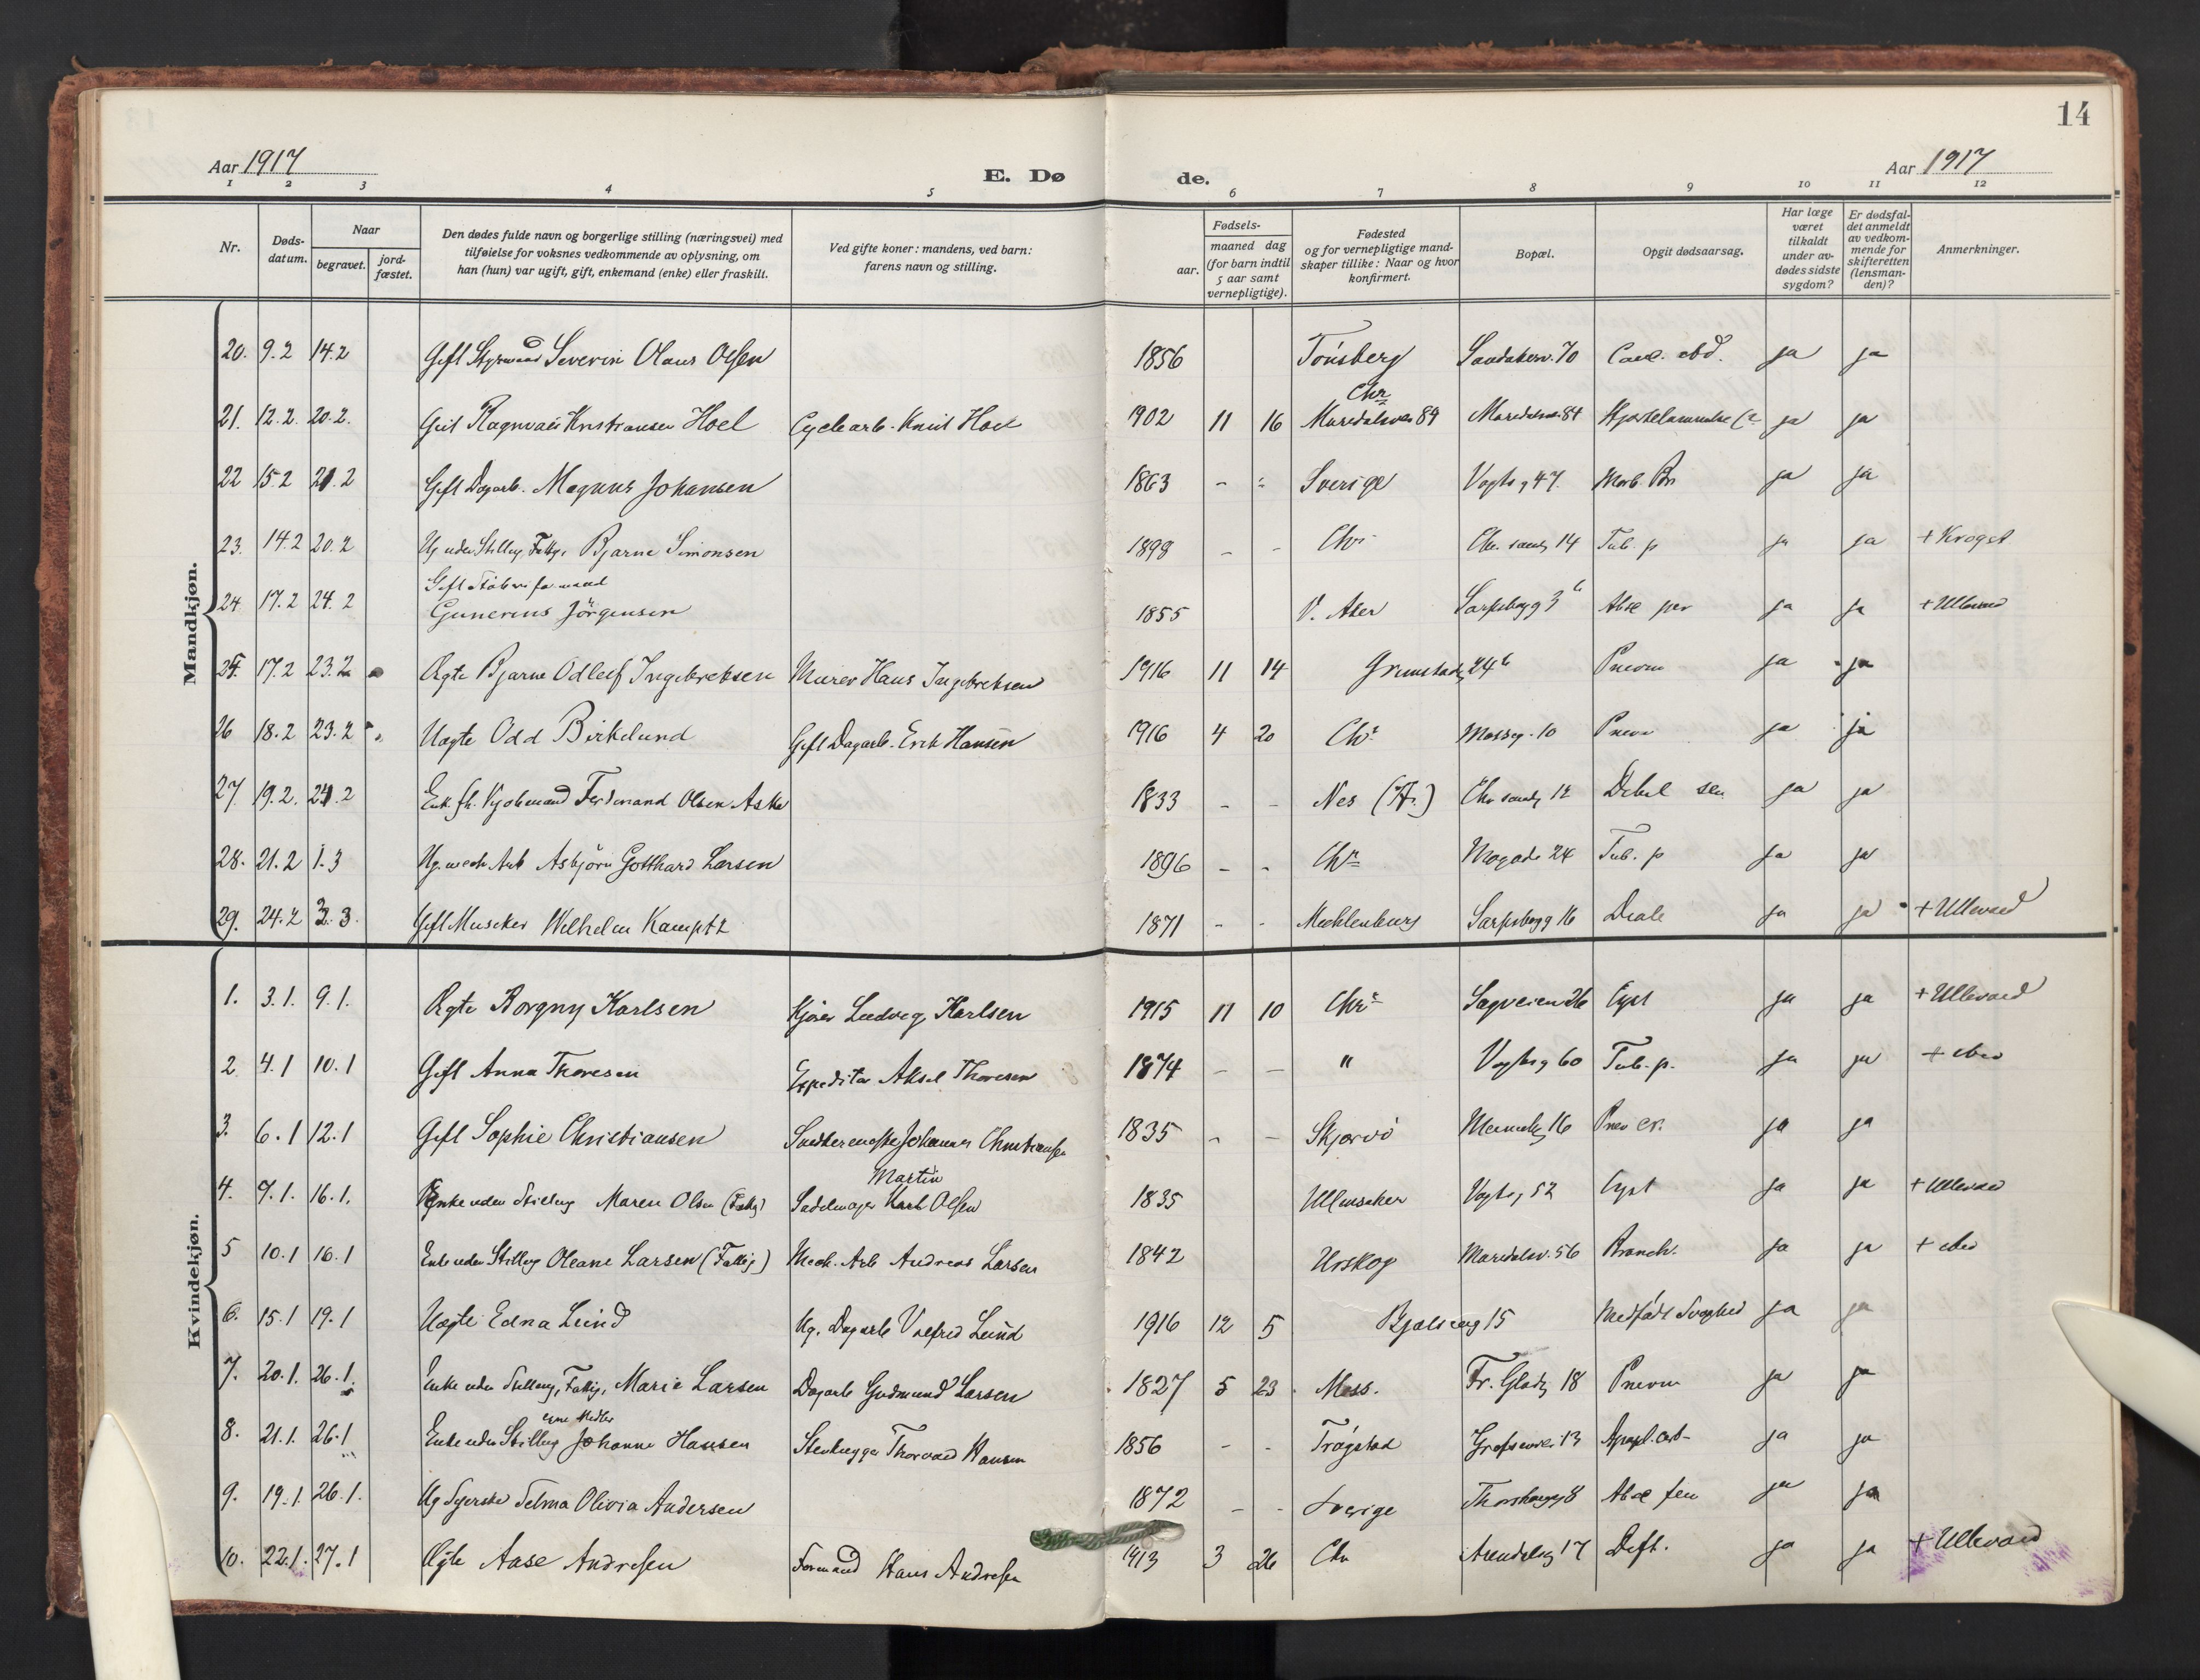 14
Aar 1917 E. Dø de. Aar 1917
1 2 3 4 5 6 7 8 9 10 11 12
Nr. Døds-datum. Naar begravet. jord-fæstet. Den dødes fulde navn og borgerlige stilling (næringsvei) med tilføielse for voksnes vedkommende av oplysning, om han (hun) var ugift, gift, enkemand (enke) eller fraskilt. Ved gifte koner: mandens, ved barn: farens navn og stilling. Fødsels- aar. maaned dag (for barn indtil 5 aar samt vernepligtige). Fødested og for vernepligtige mandskaper tillike: Naar og hvor konfirmert. Bopæl. Opgit dødsaarsag. Har læge været tilkaldt under avdødes sidste sygdom? Er dødsfaldet anmeldt av vedkommende for skifteretten (lensmanden)? Anmerkninger.
Mandkjøn.
20. 9.2 14.2 Gift Styrmand Severin Olaus Olsen 1856 Tönsberg Sandakerv. 70 ja ja
21. 12.2. 20.2. Hoel Cyclearb. Knut Hoel 1902 11 16 Chr Maridalsvei 84 Maridalsv. 84 ja ja
22 15.2 21.2 Gift Dagarb. Magnus Johansen 1863 - - Sverige Vogtsg 47. ja ja
23. 14.2 20.2 Ug uden Stilling, Fattig, Bjarne Simonsen 1898 - - Chr. 14 Tub. p ja ja + Krogst
24 17.2 24.2 Gift Gunerius Jörgensen 1855 V. Aker Sarpsborgg 3 b ja ja + Ullevaal
25. 17.2 23.2 Ægte Bjarne Odleif Ingebretsen Murer Hans Ingebretsen 1916 11 14 Grimstadg 24 b Pneum ja ja
26 18.2 23.2 Uægte Odd Birkelund Gift Dagarb. Erik Hansen 1916 4 20 Chr. Mosseg. 10 Pneum ja ja
27 19.2. 24.2 Ferdinand Olsen Aske 1833 - - Nes (H.) 12 Debil sen ja ja
28. 21.2 1.3 Ug. mech Arb Asbjörn Gotthard Larsen 1896 - - Chr. Mogade 24 Tub. p ja ja
29. 24.2 3.3. Gift Musiker Wilhelm Kamptz 1871 - - Mecklenburg Sarpsborgg 16 ja ja + Ullevaal
Kvindekjøn.
1. 3.1. 9.1. Ægte Borgny Karlsen Kjører Ludvig Karlsen 1915 11 10 Chr. Sagveien 26 Cyst ja ja + Ullevaal
2. 4.1 10.1 Gift Anna Thoresen Expeditør Aksel Thoresen 1874 - - " Vogtsg 60 Tub. p. ja ja +
3. 6.1 12.1 Gift Sophie Christiansen Johannes Christiansen 1835 - - Skjervö 16 Pneu cr. ja ja
4. 7.1. 16.1. Enke uden Stilling Maren Olsen (Fattig) Sadelmager Karl Martin Olsen 1835 Ullensaker Vogtsg 52 Cyst ja ja + Ullevaal
5 10.1 16.1 Enke uden Stilling Oleane Larsen (Fattig) Mech. Arb Andreas Larsen 1842 Urskog Maridalsv. 56 Bronch. ja ja +
6. 15.1 19.1 Uægte Edna Lund Ug. Dagarb Valfred Lund 1916 12 5 15 Medfödt Svaghed ja ja
7. 20.1. 26.1. Enke uden Stilling, Fattig, Marie Larsen Dagarb Gudmund Larsen 1827 5 23 Moss. Fr. Gladsg 18 Pneum ja ja
8. 21.1. 26.1 Enke uden Stilling egne Midler Johanne Hansen Stenhugger Thorvald Hansen 1856 - - Trögstad Grefsenvei 13 ja ja
9. 19.1. 26.1. Ug Syerske Selma Olivia Andersen 1872 - - Sverige Thorshaugg 8 ja ja
10. 22.1. 27.1 Ægte Aase Andresen Formand Hans Andresen 1913 3 26 Chr Arendalsg 17 Dift. ja ja + Ullevaal